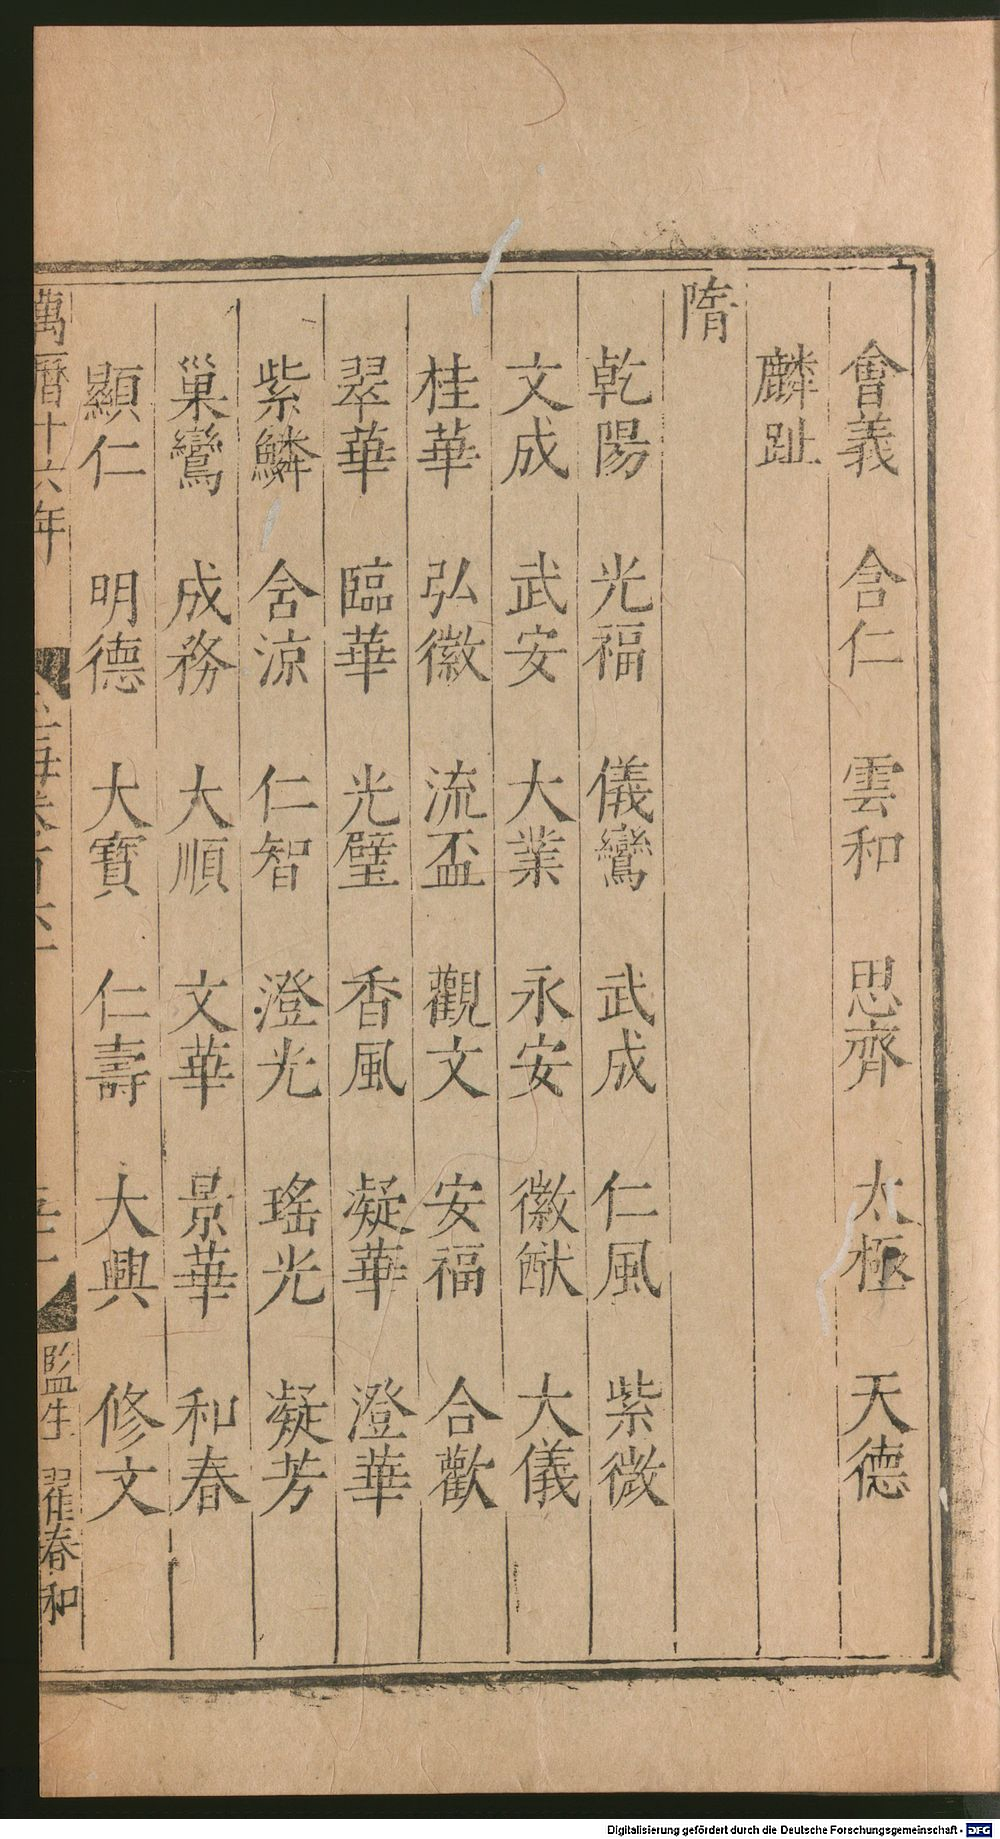 會義 含仁 雲和 思齊 太極 天德
麟趾
隋
乾陽 光福 儀鸞 武成 仁風 紫微
文成 武安 大業 永安 徽猷 大儀
桂華 弘徽 流盃 觀文 安福 合歡
翠華 臨華 光璧 香風 凝華 澄華
紫鱗 舍涼 仁智 澄光 瑤光 凝芳
巢鸞 成務 大順 文華 景華 和春
顯仁 明德 大寶 仁壽 大興 修文
萬曆十六年
監生 翟春和
Digitalisierung gefördert durch die Deutsche Forschungsgemeinschaft - DFG